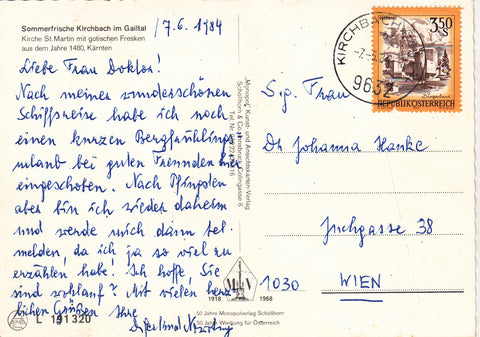 Sommerfrische Kirchbach im Gailtal
Kirche St. Martin mit gotischen Fresken
aus dem Jahre 1480, Kärnten
7.6.1984
Liebe Frau Doktor!
Nach meiner wunderschönen
Schiffsreise habe ich noch
einen kurzen Bergfrühlings
urlaub bei guten Freunden hier
eingeschoben. Nach Pfingsten
aber bin ich wieder daheim
und werde mich dann tel.
melden, da ich ja so viel zu
erzählen habe! Ich hoffe, Sie
sind wohlauf? Mit vielen herz
lichen Grüßen Ihre
L 191320
"Monopol" Kunst- und Ansichtskarten-Verlag
Schöllhorn &
1918 1968
50 Jahre Monopolverlag Schöllhorn
50 Jahre Werbung für Österreich
KIRCHBACH
9632
350
S
REPUBLIK ÖSTERREICH
Sig. Frau
Dr Johanna Hanke
Juchgasse 38
1030 WIEN